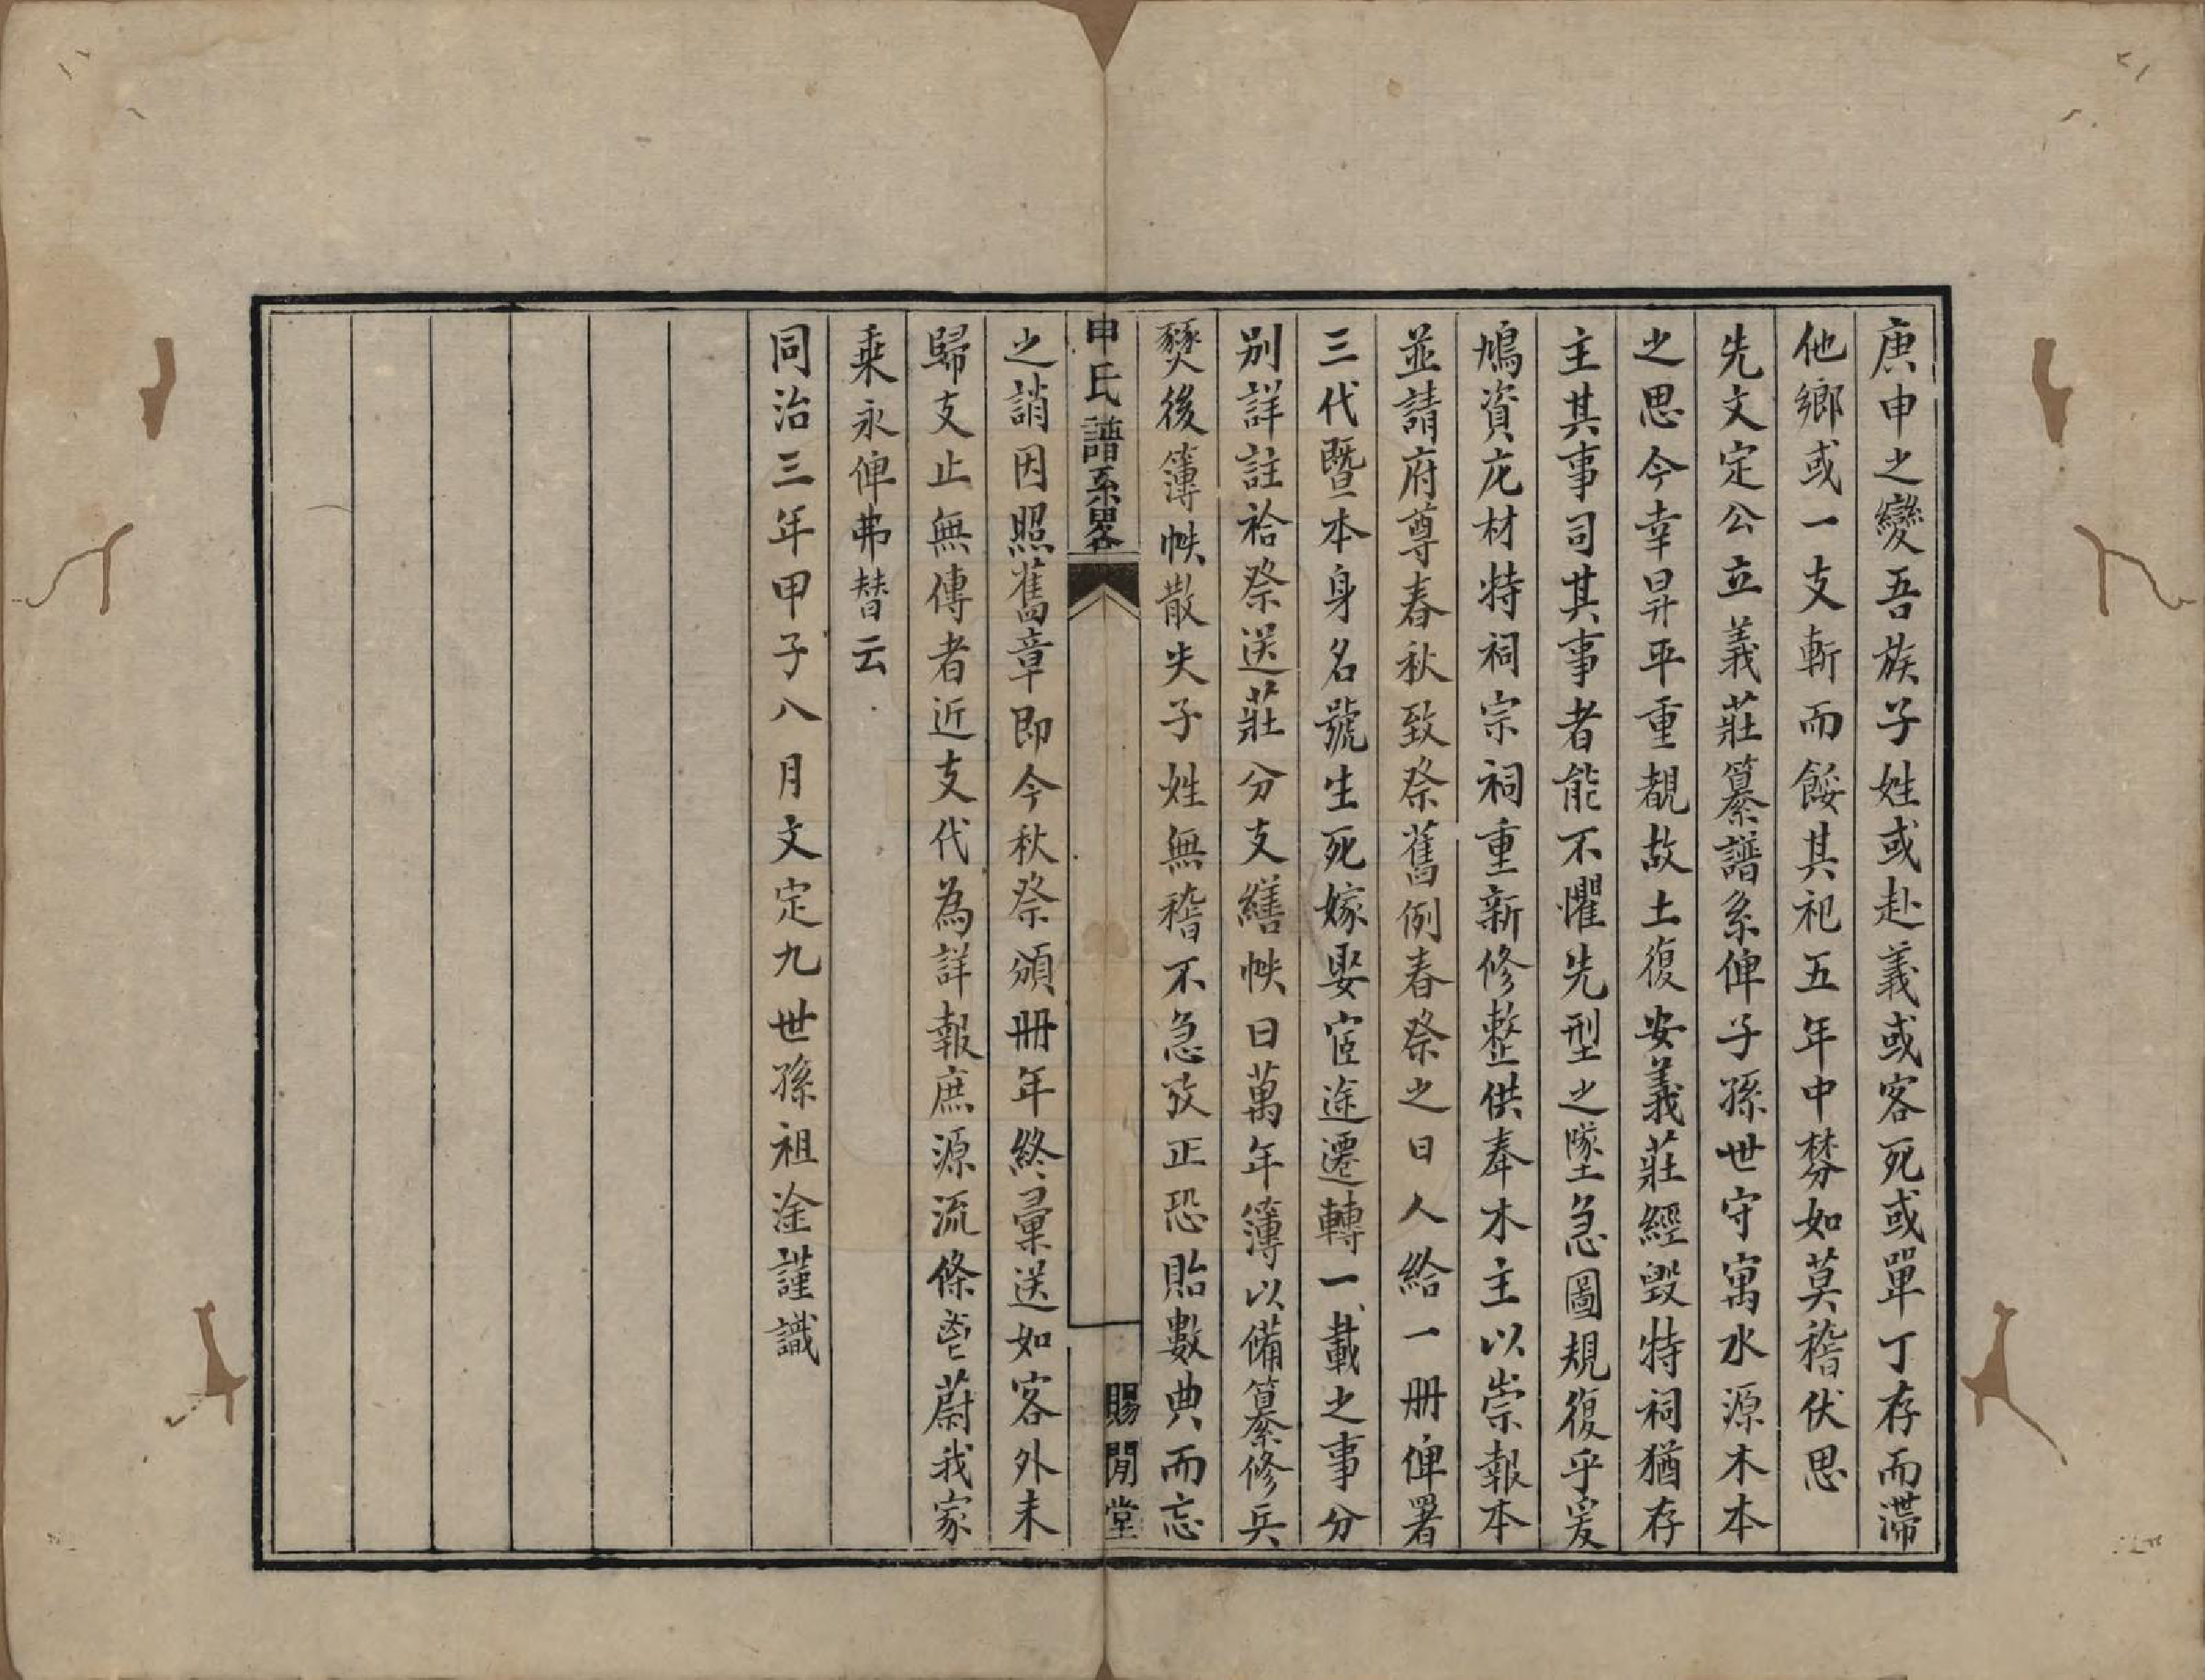 庚申之變吾族子姓或赴義或客死或單丁存而滯
他鄉或一支斬而餒其祀五年中棼如莫稽伏思
先文定公立義莊纂譜系俾子孫世守寓水源木本
之思今幸昇平重覩故土復安義莊經毁特祠猶存
主其事司其事者能不懼先型之墜急圖規復乎爰
鳩資庀材特祠宗祠重新修整供奉木主以崇報本
並請府尊春秋致祭舊例春祭之日人給一册俾署
三代暨本身名號生死嫁娶宦途遷轉一載之事分
別詳註祫祭送莊分支繕帙曰萬年簿以備纂修兵
燹後簿帙散失子姓無稽不急攷正恐貽數典而忘
申氏譜系畧
賜閒堂
之誚因照舊章即今秋祭頒册年終彙送如客外未
歸支止無傳者近支代為詳報庶源流條鬯蔚我家
乘永俾弗替云
同治三年甲子八月文定九世孫祖淦謹識